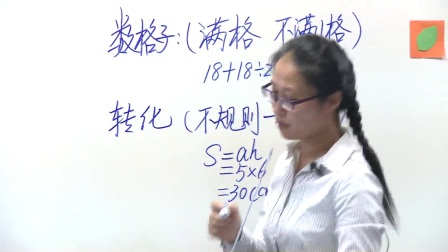 数格子：（满格 不满1格）
18+18÷2
转化（不规则一
S=ah
=5×6
=30(c